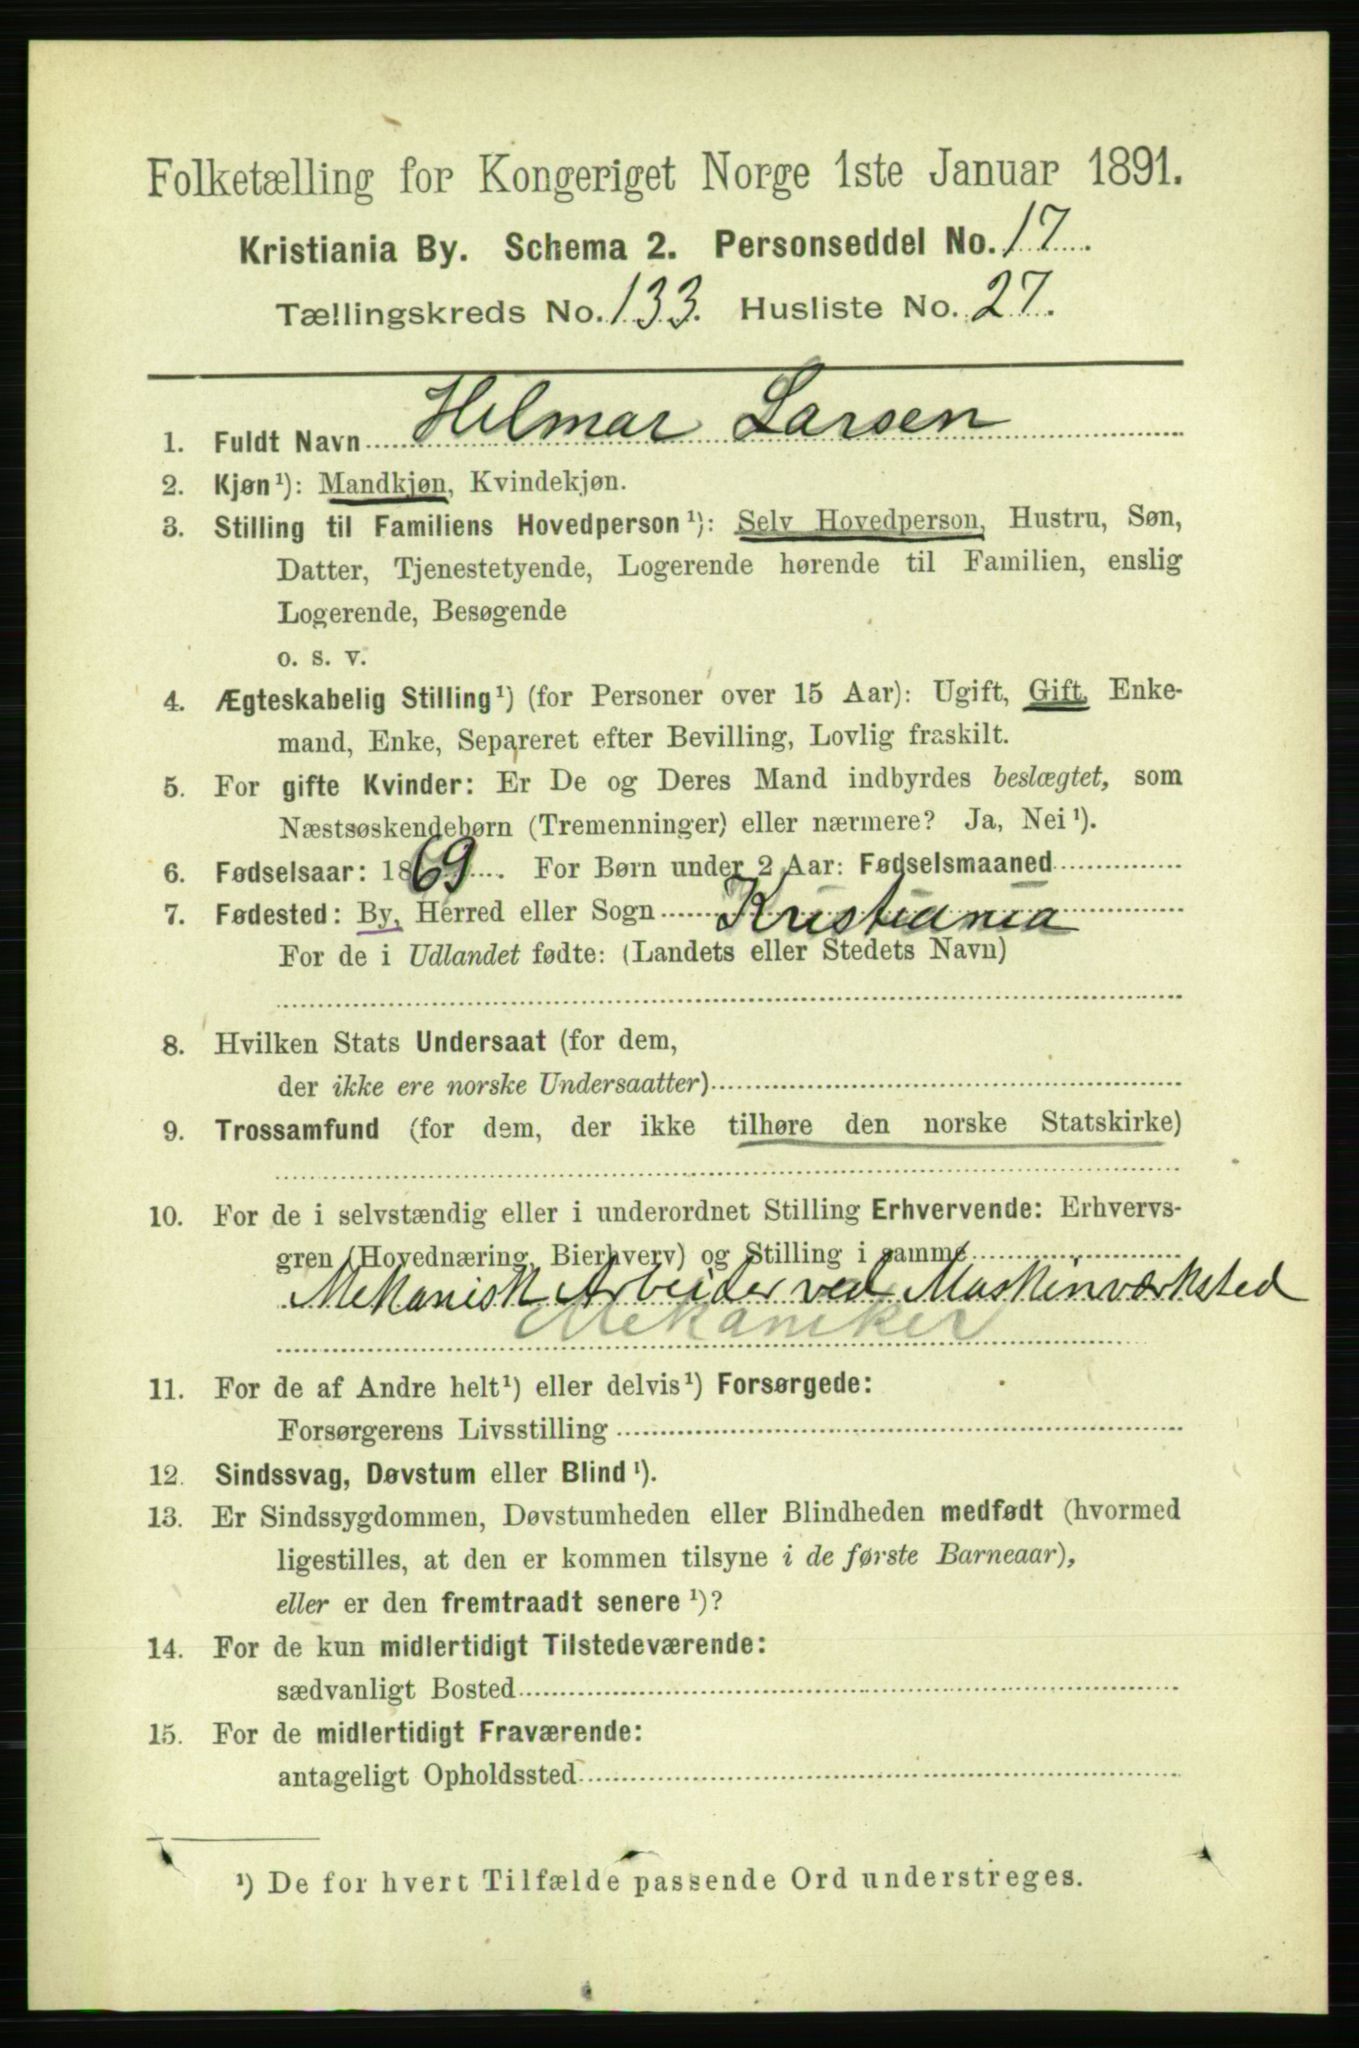 Folketælling for Kongeriget Norge 1ste Januar 1891.
Kristiania By. Schema 2. Personseddel No. 17.
Tællingskreds No. 133. Husliste No. 27.
1. Fuldt Navn Hilmar Larsen
2. Kjøn¹): Mandkjøn, Kvindekjøn.
3. Stilling til Familiens Hovedperson¹): Selv Hovedperson, Hustru, Søn,
Datter, Tjenestetyende, Logerende hørende til Familien, enslig
Logerende, Besøgende
o. s. v.
4. Ægteskabelig Stilling¹) (for Personer over 15 Aar): Ugift, Gift, Enke-
mand, Enke, Separeret efter Bevilling, Lovlig fraskilt.
5. For gifte Kvinder: Er De og Deres Mand indbyrdes beslægtet, som
Næstsøskendebørn (Tremenninger) eller nærmere? Ja, Nei¹).
6. Fødselsaar: 1869. For Børn under 2 Aar: Fødselsmaaned
7. Fødested: By, Herred eller Sogn Kristiania
For de i Udlandet fødte: (Landets eller Stedets Navn)
8. Hvilken Stats Undersaat (for dem,
der ikke ere norske Undersaatter)
9. Trossamfund (for dem, der ikke tilhøre den norske Statskirke)
10. For de i selvstændig eller i underordnet Stilling Erhvervende: Erhvervs-
gren (Hovednæring, Bierhverv) og Stilling i samme
Mekanisk Arbeider ved Maskinværksted
Mekaniker
11. For de af Andre helt¹) eller delvis¹) Forsørgede:
Forsørgerens Livsstilling
12. Sindssvag, Døvstum eller Blind¹).
13. Er Sindssygdommen, Døvstumheden eller Blindheden medfødt (hvormed
ligestilles, at den er kommen tilsyne i de første Barneaar),
eller er den fremtraadt senere¹)?
14. For de kun midlertidigt Tilstedeværende:
sædvanligt Bosted
15. For de midlertidigt Fraværende:
antageligt Opholdssted
¹) De for hvert Tilfælde passende Ord understreges.